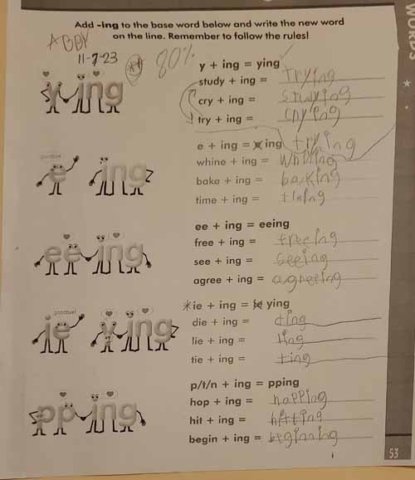 Add -ing to the base word below and write the new word
on the line. Remember to follow the rules!
ABBY
11-7-23
80%
WORDS
y ing
y + ing = ying
study + ing = Trying
cry + ing = studying
try + ing = crying
trying
goodbye!
e ing
e + ing = ing
whine + ing = whining
bake + ing =
time + ing =
ee ing
ee + ing = eeing
free + ing = freeing
see + ing = seeing
agree + ing = agreeing
goodbye!
ie y ing
*ie + ing = ie ying
die + ing = ding
lie + ing = ling
tie + ing = ting
pp ing
p/t/n + ing = pping
hop + ing = happing
hit + ing = hitting
begin + ing =
53